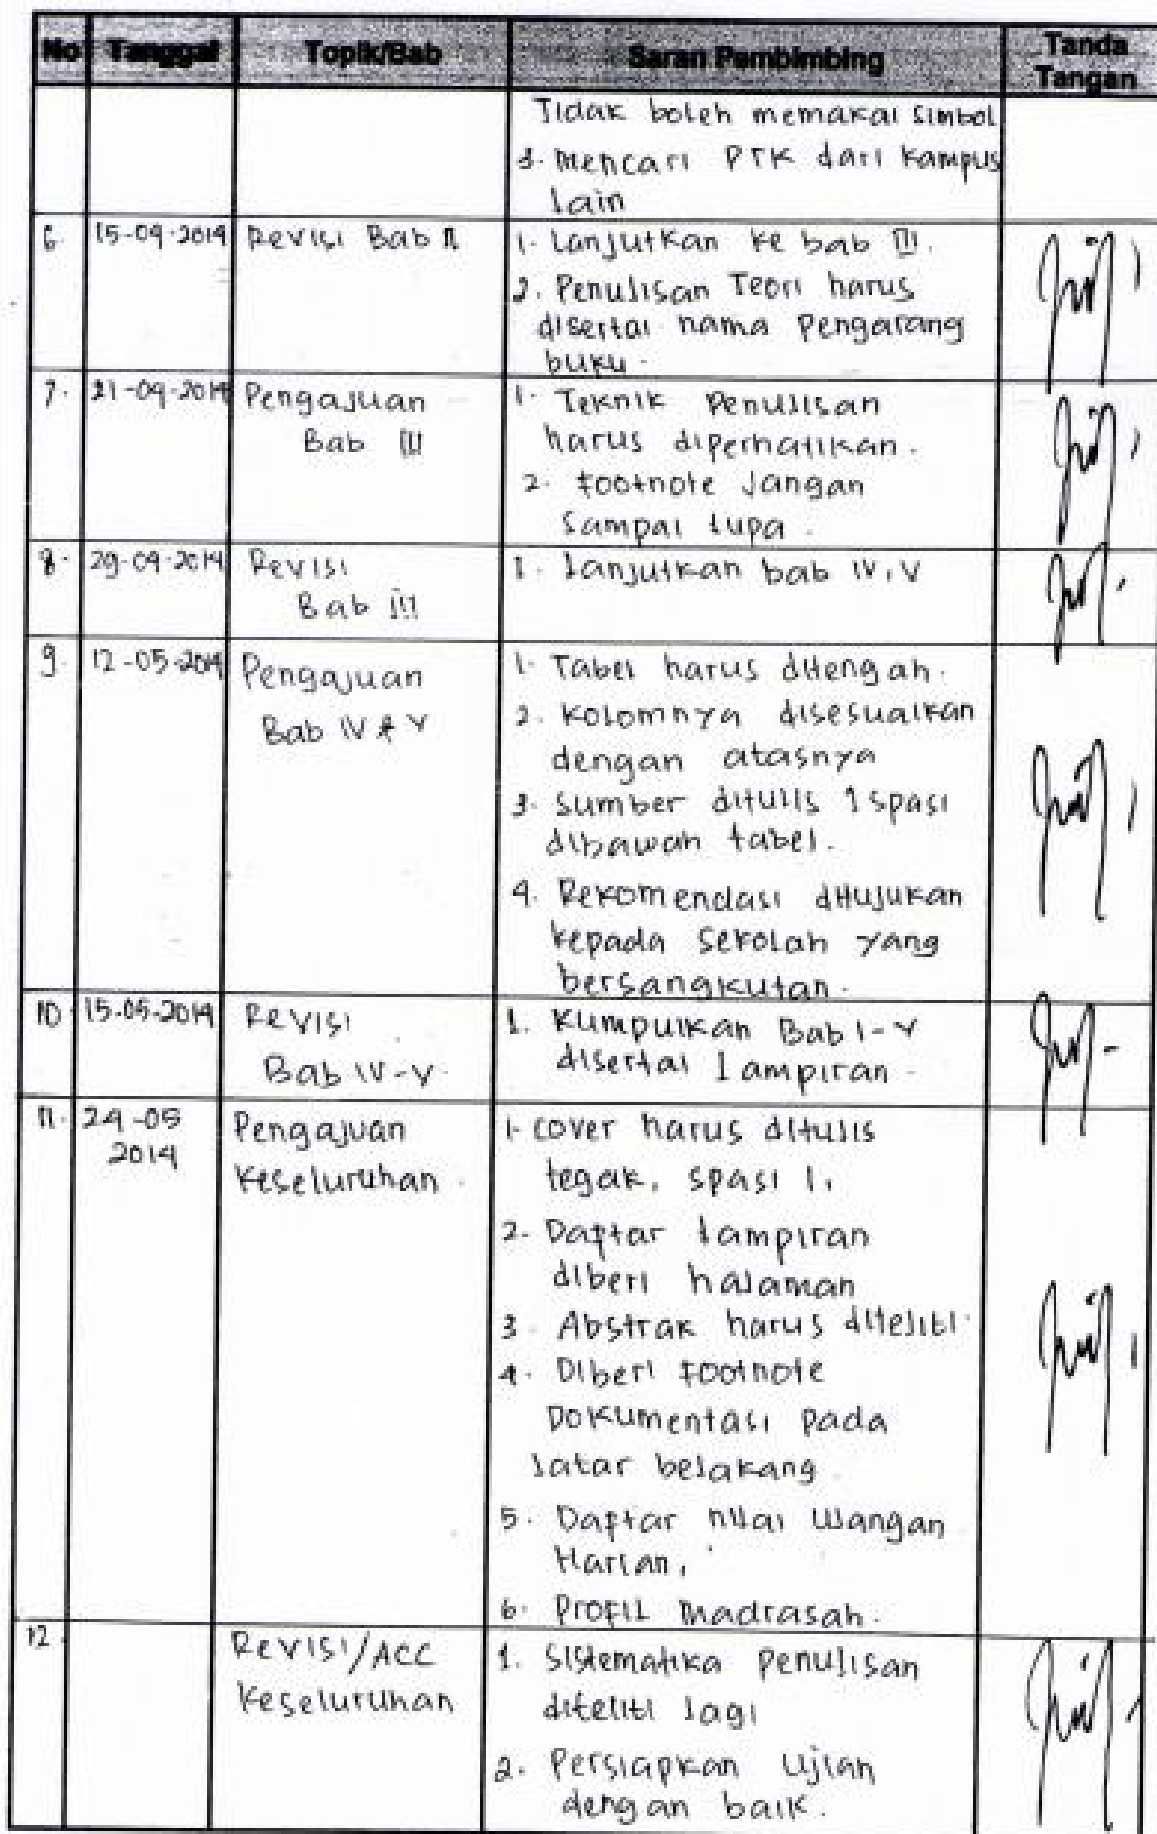 No Tanggal Topik/Bab Saran Pembimbing Tanda Tangan
Tidak boleh memakai simbol
3. Mencari PTK dari kampus
lain
6. 15-04-2014 Revisi Bab II 1. Lanjutkan ke bab III.
2. Penulisan Teori harus
disertai nama Pengarang
buku.
7. 21-04-2014 Pengajuan 1. Teknik Penulisan
Bab III harus diperhatikan.
2. Footnote Jangan
Sampai lupa.
8. 29-04-2014 Revisi 1. Lanjutkan bab IV, V
Bab III
9. 12-05-2014 Pengajuan 1. Tabel harus ditengah.
Bab IV & V 2. Kolomnya disesuaikan
dengan atasnya
3. Sumber ditulis 1 spasi
dibawah tabel.
4. Rekomendasi ditujukan
kepada Sekolah yang
bersangkutan.
10. 15-05-2014 Revisi 1. Kumpulkan Bab I-V
Bab IV-V. disertai Lampiran.
11. 24-05 Pengajuan 1. cover harus ditulis
2014 Keseluruhan. tegak, spasi 1,
2. Daftar lampiran
diberi halaman
3. Abstrak harus diteliti.
4. Diberi footnote
Dokumentasi pada
latar belakang.
5. Daftar nilai Ulangan
Harian,
6. Profil Madrasah.
12. Revisi/ACC 1. Sistematika penulisan
Keseluruhan diteliti lagi
2. Persiapkan Ujian
dengan baik.